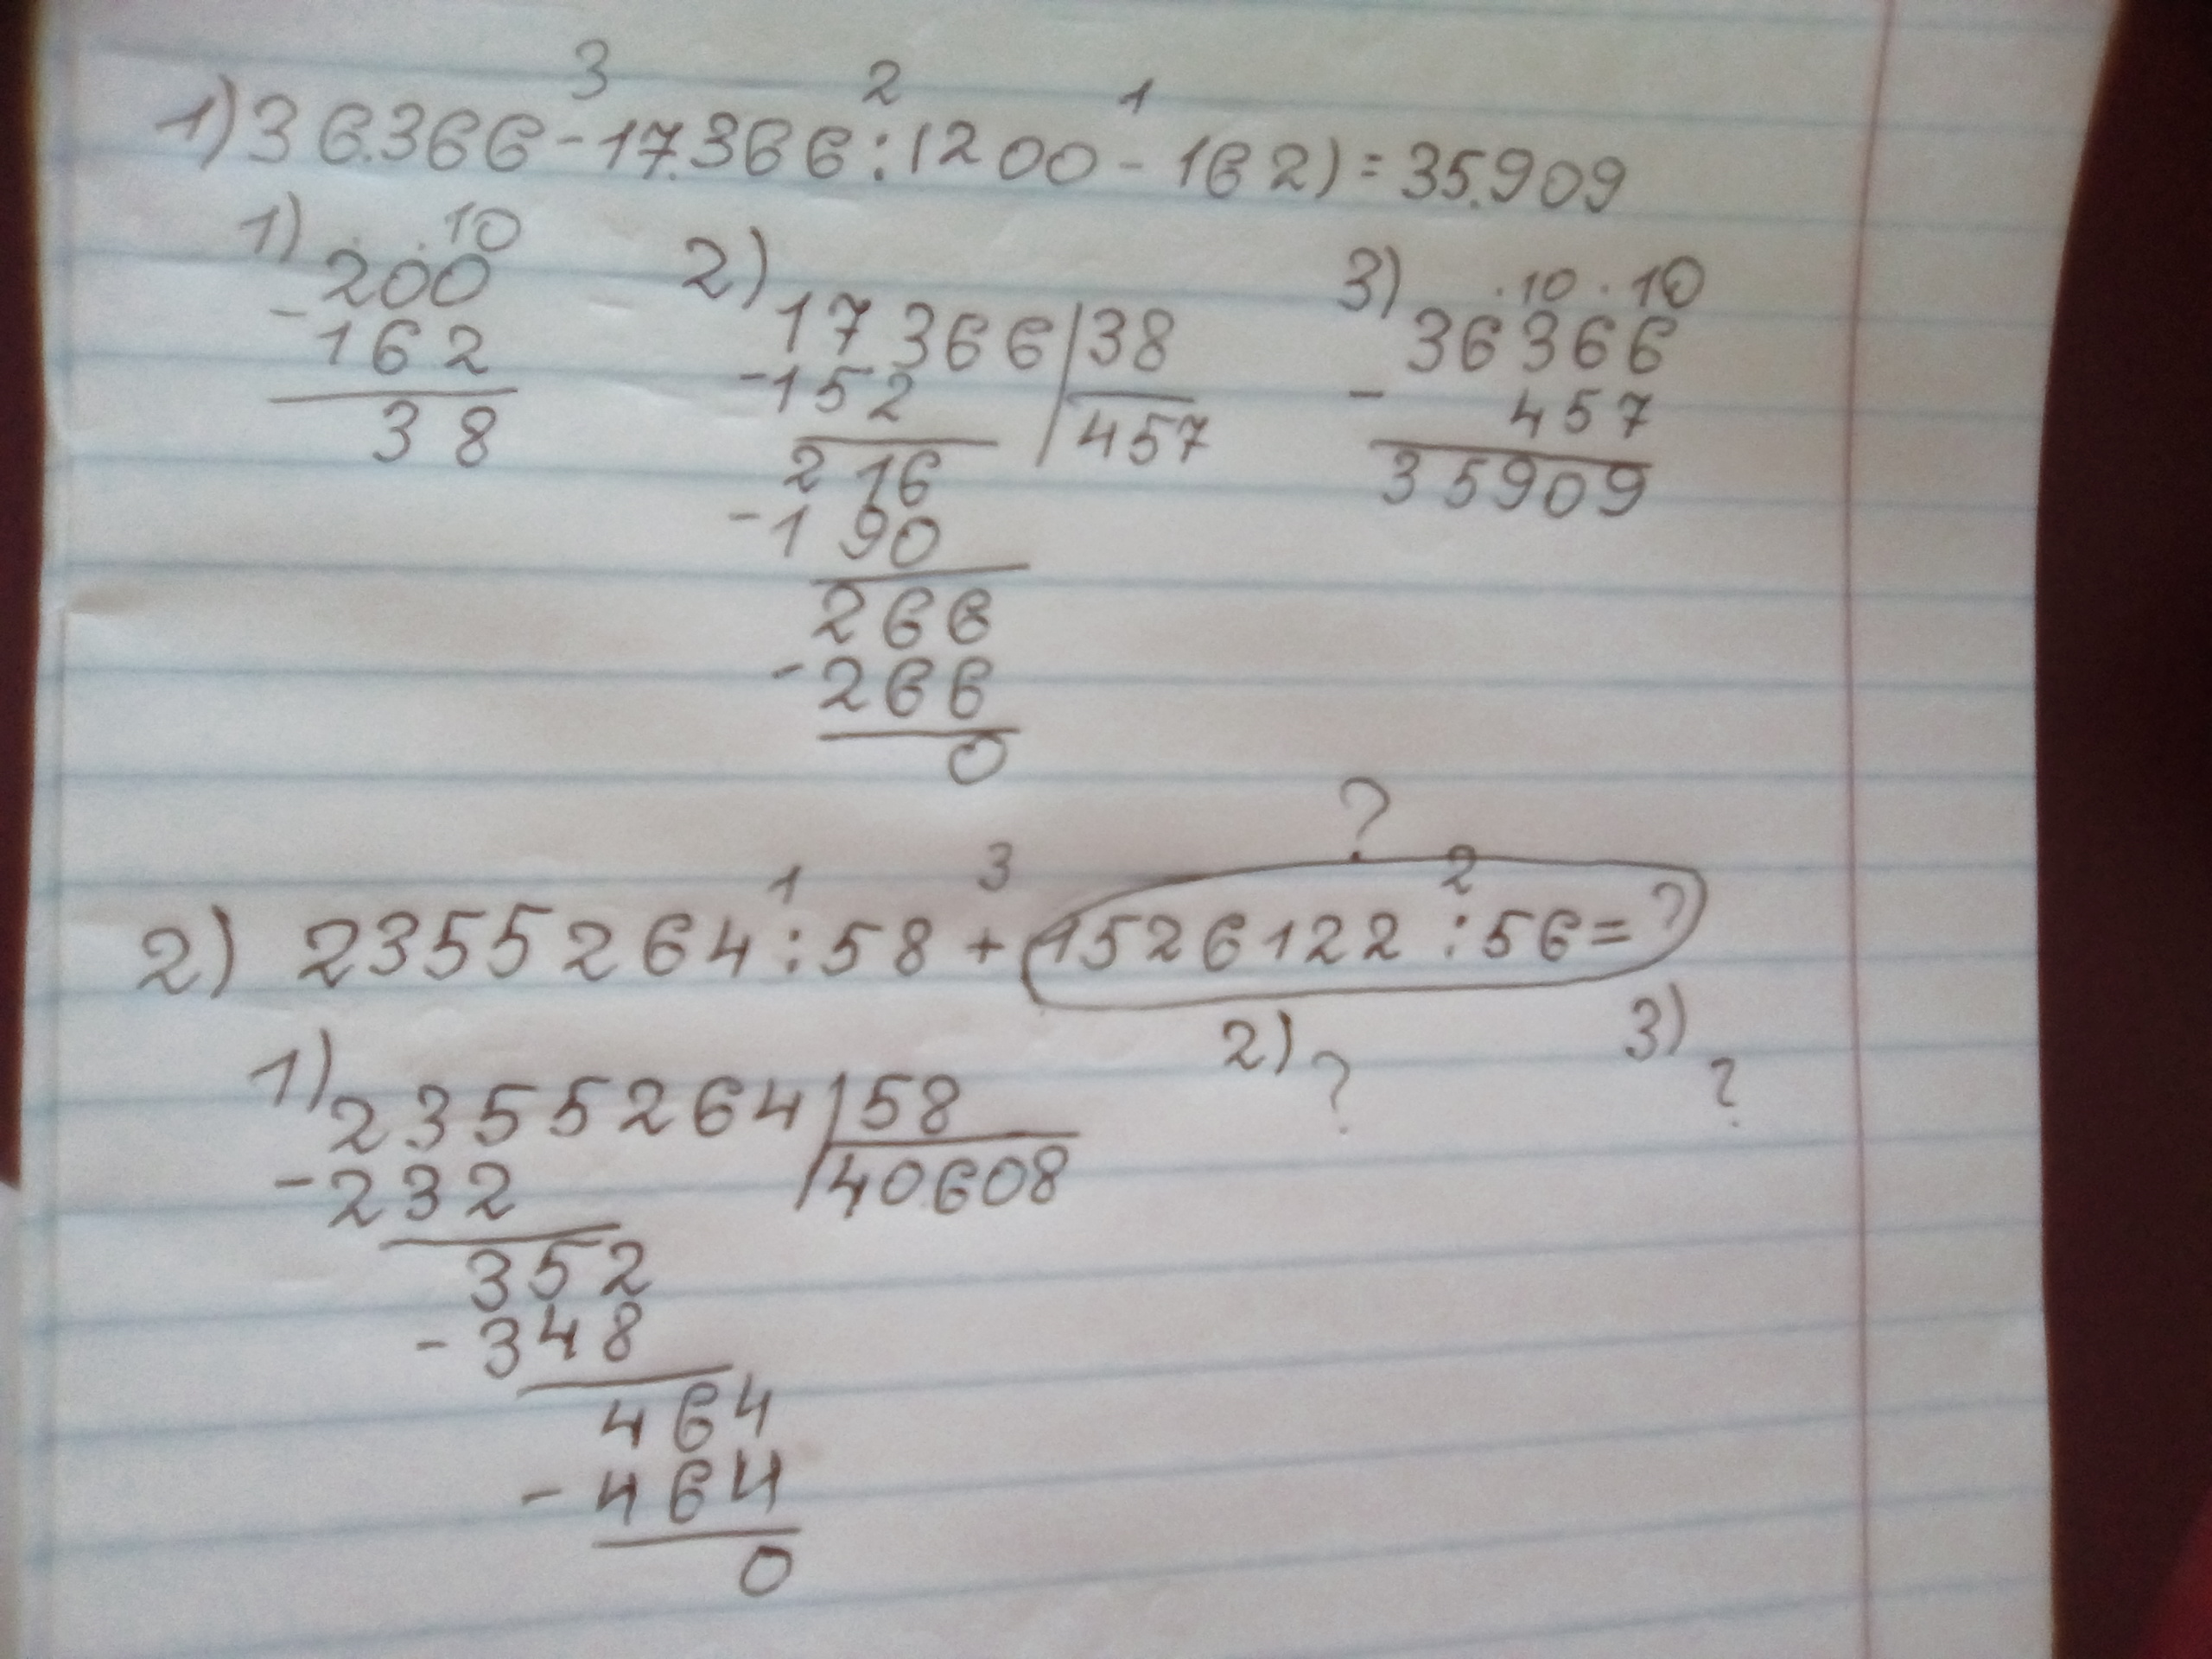 3 2 1
1) 36.366 - 17.366 : (200 - 162) = 35.909
1) . . 10
200
- 162
38
2) 17 366 | 38
- 152 457
216
- 190
266
- 266
0
3) . 10 . 10
36366
- 457
35909
?
1 3 2
2) 2355264 : 58 + 1526122 : 56 = ?
1) 2355264 | 58
- 232 40608
352
- 348
464
- 464
0
2) ?
3) ?